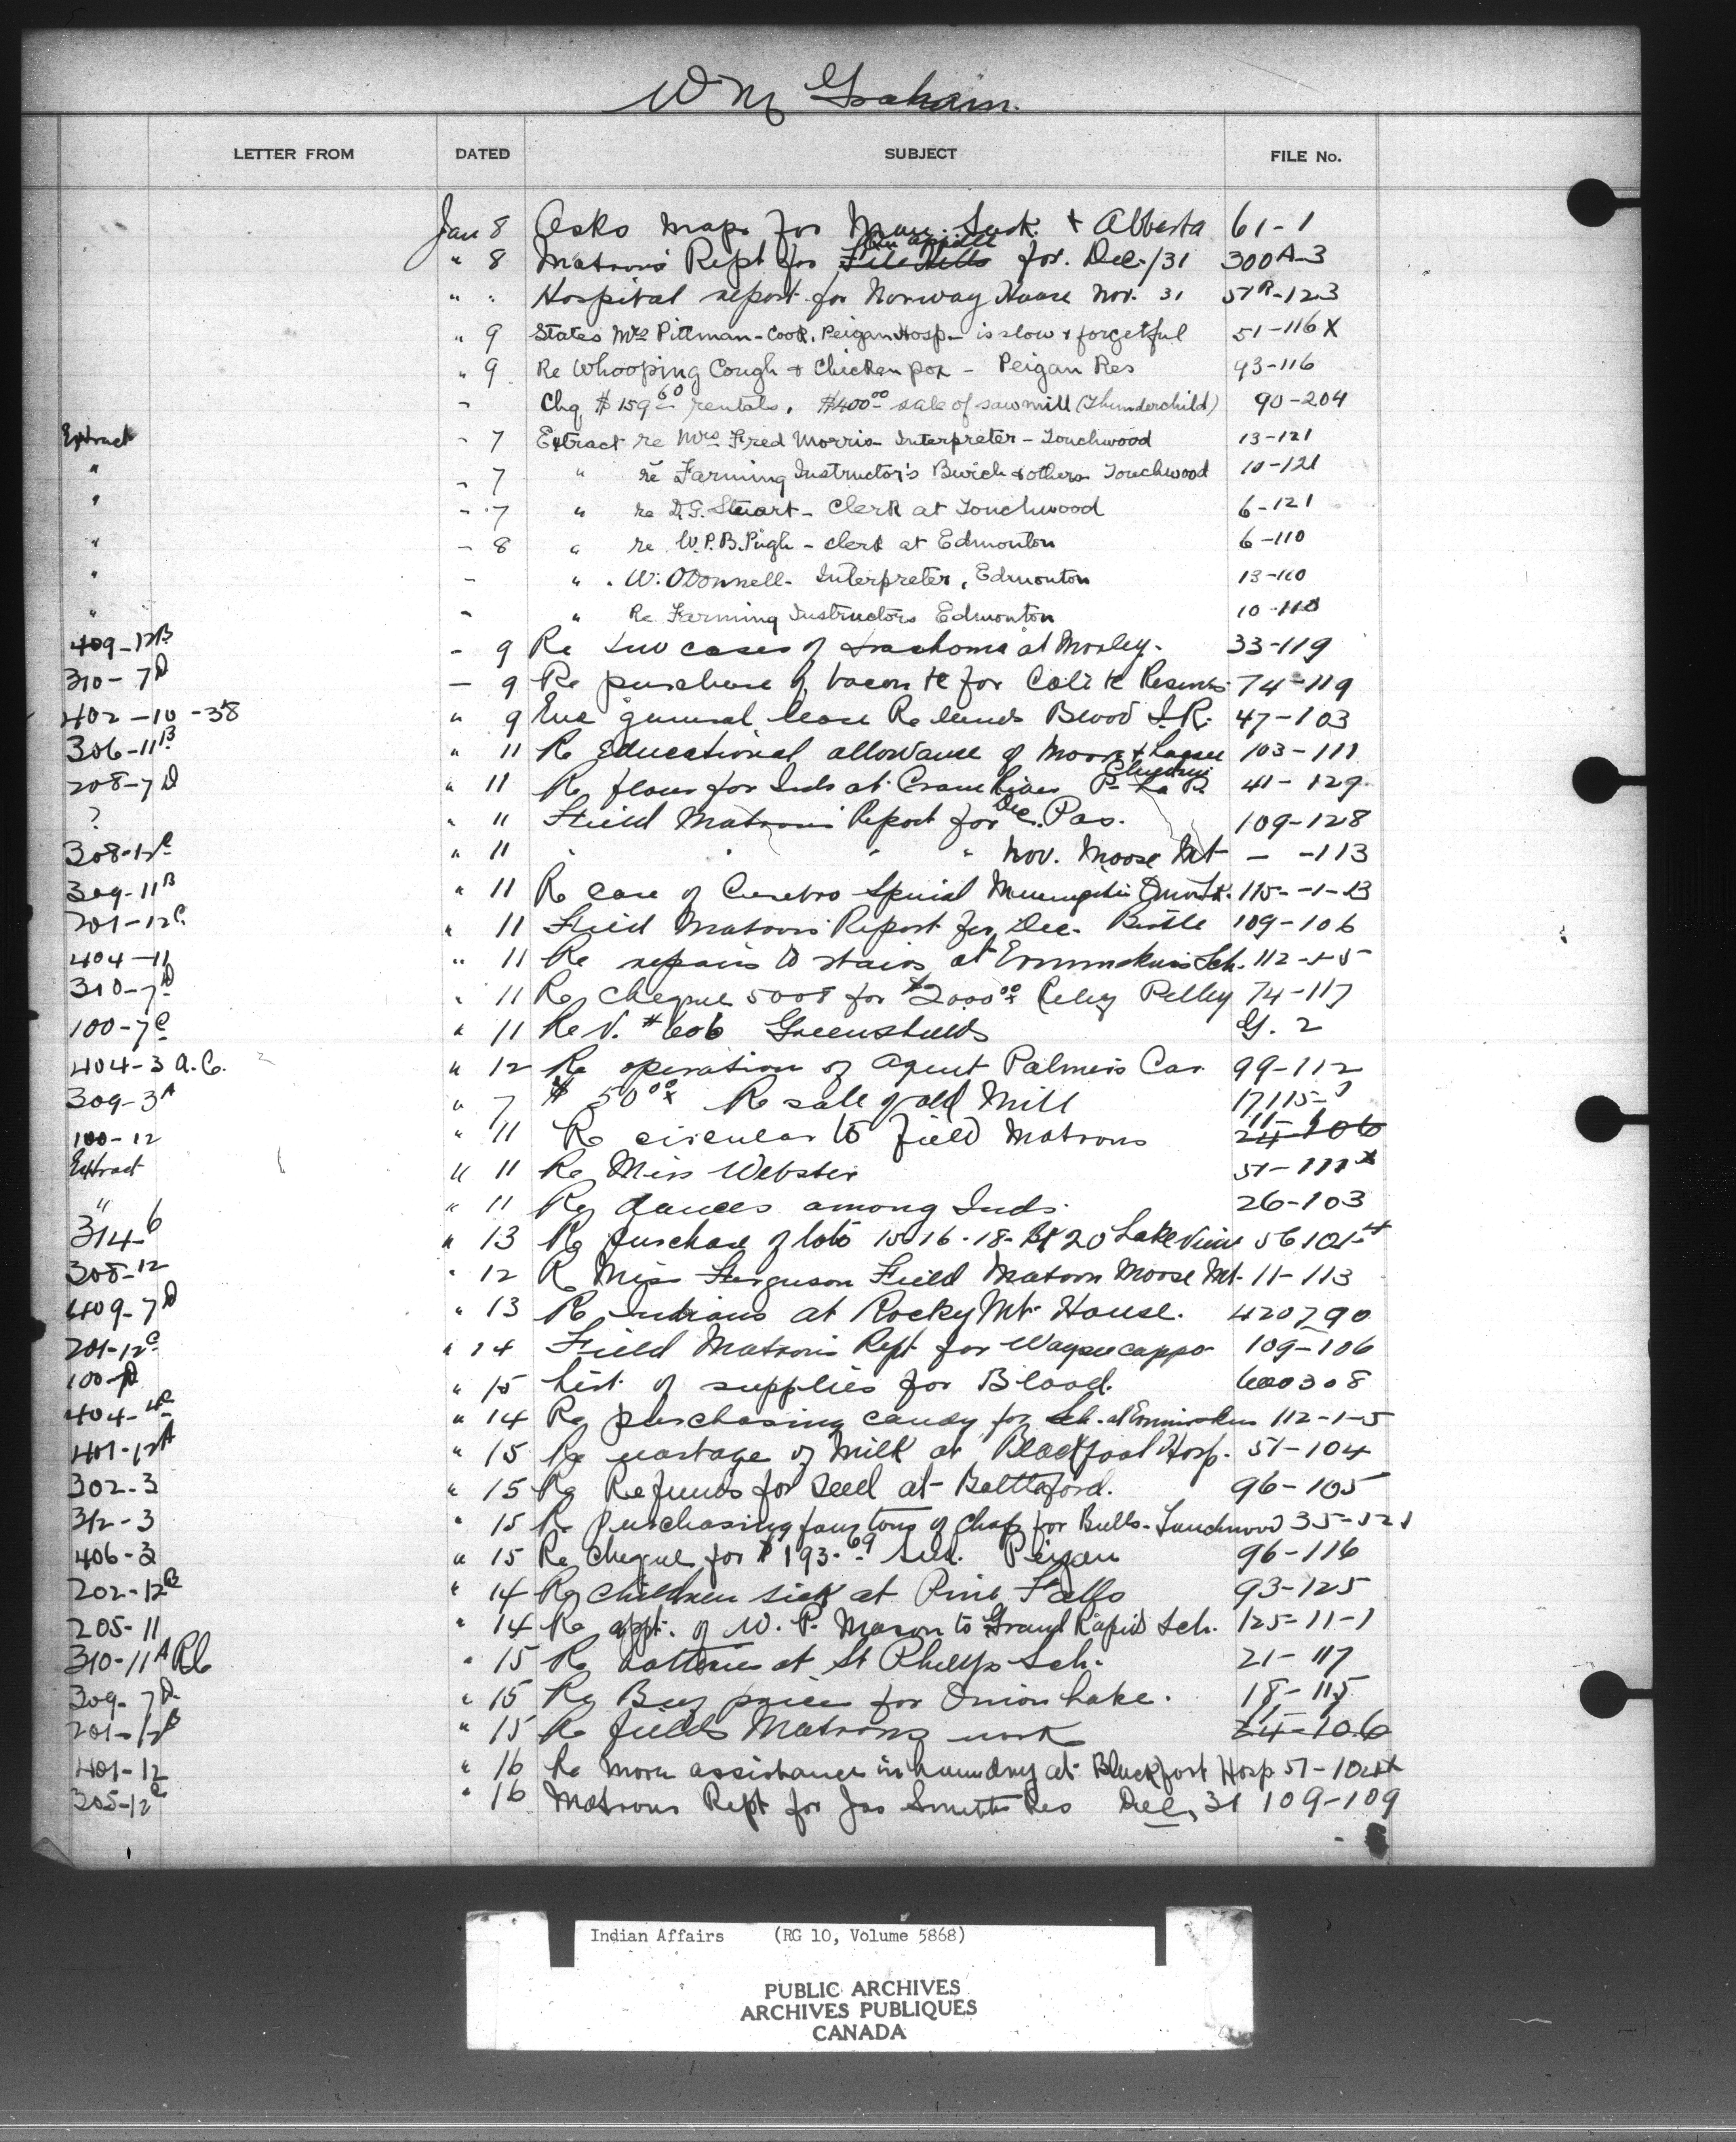 W M Graham.
LETTER FROM DATED SUBJECT FILE No.
Jan 8 Asks maps for Man. Sask. & Alberta 61-1
" 8 Matrons Rept for Qu'appelle File Hills for. Dec./31 300A-3
" " Hospital report for Norway House Nov. 31 51A-123
" 9 States Mrs Pittman - Cook, Peigan Hosp - is slow & forgetful 51-116X
" 9 Re Whooping Cough & Chicken pox - Peigan Res 93-116
- Chq $159.60 rentals, $400.00 sale of sawmill (Thunderchild) 90-204
Extract - 7 Extract re Mrs Fred Morris Interpreter - Touchwood 13-121
" - 7 " re Farming Instructor's & others Touchwood 10-121
" - 7 " re D.G. Stuart - Clerk at Touchwood 6-121
" - 8 " re W.P.B. Pugh - clerk at Edmonton 6-110
" - " " W. O'Donnell - Interpreter, Edmonton 13-110
" - " Re Farming Instructors Edmonton 10-110
409-12B - 9 Re two cases of trachoma at Morley. 33-119
310-7D - 9 Re purchase of bacon for Reserves 74-119
402-10-38 " 9 Enc general lease Re lands Blood I.R. 47-103
306-11B " 11 Re educational allowance of Moore & 103-111
208-7D " 11 Re flour for Inds at Crane River P. La P. 41-129
? " 11 Field Matrons Report for Dec. Pas. 109-128
308-12C " 11 " " " " Nov. Moose Mt - -113
309-11B " 11 Re case of Cerebro Spinal Meningitis 115-1-13
201-12C " 11 Field Matrons Report for Dec. Birtle 109-106
404-11 " 11 Re repairs to stairs at Ermineskins Sch. 112-5-5
310-7D " 11 Re cheque 5008 for $2000.00 Pelly 74-117
100-7C " 11 Re V. #606 Greenshields G. 2
404-3 A.C. " 12 Re operation of Agent Palmers Car 99-112
309-3A " 7 $50.00 Re sale of old Mill 17115-
100-12 " 11 Re circular to field Matrons 11- 24-106
Extract " 11 Re Miss Webster 51-111X
" " 11 Re dances among Inds. 26-103
314-6 " 13 Re purchase of lots 15-16-18- 20 Lake View 56101-4
308-12 " 12 Re Miss Ferguson Field Matron Moose Mt. 11-113
409-7D " 13 Re Indians at Rocky Mt House. 420790
201-12C " 14 Field Matrons Rept for Waywayseecappo 109-106
100-D " 15 List of supplies for Blood. 600308
404-4C " 14 Re purchasing candy for Sch. at Ermineskins 112-1-5
401-12A " 15 Re cartage of Milk at Blackfoot Hosp. 51-104
302-3 " 15 Re Refunds for seed at Battleford. 96-105
312-3 " 15 Re purchasing four tons of chop for Bulls - Touchwood 35-121
406-3 " 15 Re cheque for $193.69 Peigan 96-116
202-12B " 14 Re children sick at Pine Falls 93-125
205-11 " 14 Re appt. of W. P. Mason to Grand Rapids Sch. 125-11-1
310-11A " 15 Re batteries at St Philips Sch. 21-117
309-7D " 15 Re Beef prices for Onion Lake. 18-115
201-12B " 15 Re fields Matrons work 11- 24-106
401-12 " 16 Re more assistance in laundry at Blackfoot Hosp 51-104X
305-12C " 16 Matrons Rept for Jas Smiths Res Dec, 31 109-109
Indian Affairs (RG 10, Volume 5868)
PUBLIC ARCHIVES
ARCHIVES PUBLIQUES
CANADA